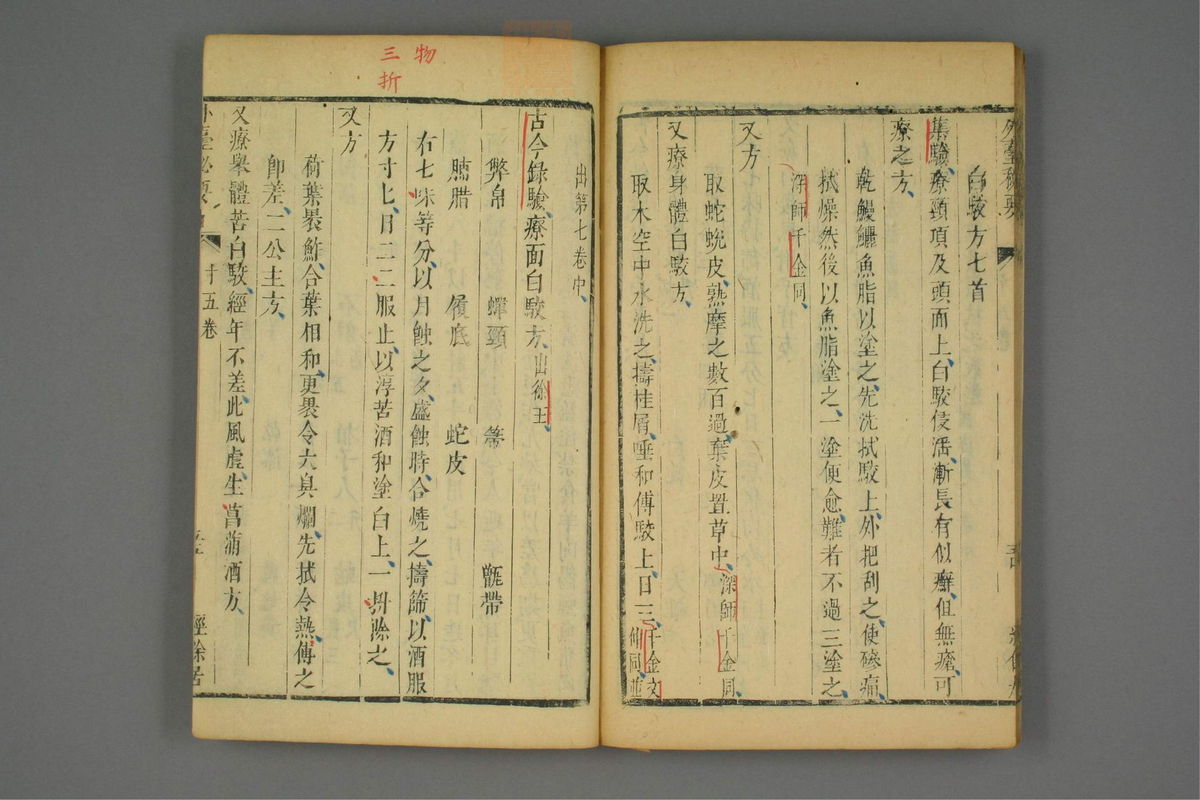 外臺秘要
白駮方七首
集驗療頸項及頭面上白駮侵淫漸長有似癬但無瘡可
療之方
乾鰻鱺魚脂以塗之先洗拭駮上外把刮之使磣痛
拭燥然後以魚脂塗之一塗便愈難者不過三塗之
深師千金同
又方
取蛇蛻皮熟摩之數百過棄皮置草中深師千金同
又療身體白駮方
取木空中水洗之擣桂屑唾和傅駮上日三千金文
仲同並
出第七卷中
三物
折
古今録驗療面白駮方出徐王
弊帛 蟬頸 箒 甑帶
脯腊 履底 蛇皮
右七味等分以月蝕之夕盛蝕時合燒之擣篩以酒服
方寸匕日二三服止以淳苦酒和塗白上一拊除之
又方
荷葉褁鮓合葉相和更褁令大臭爛先拭令熱傅之
卽差二公主方
又療舉體苦白駮經年不差此風虛生菖蒲酒方
外臺秘要 卄五卷 經餘居